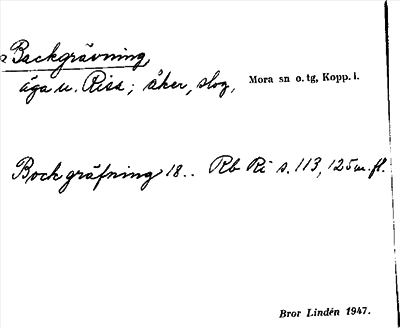 Backgrävning,
äga u. Risa; åker, slog, Mora sn o. tg, Kopp. l.
Bockgräfning 18.. Rb Ri s. 113, 125 m. fl.
Bror Lindén 1947.